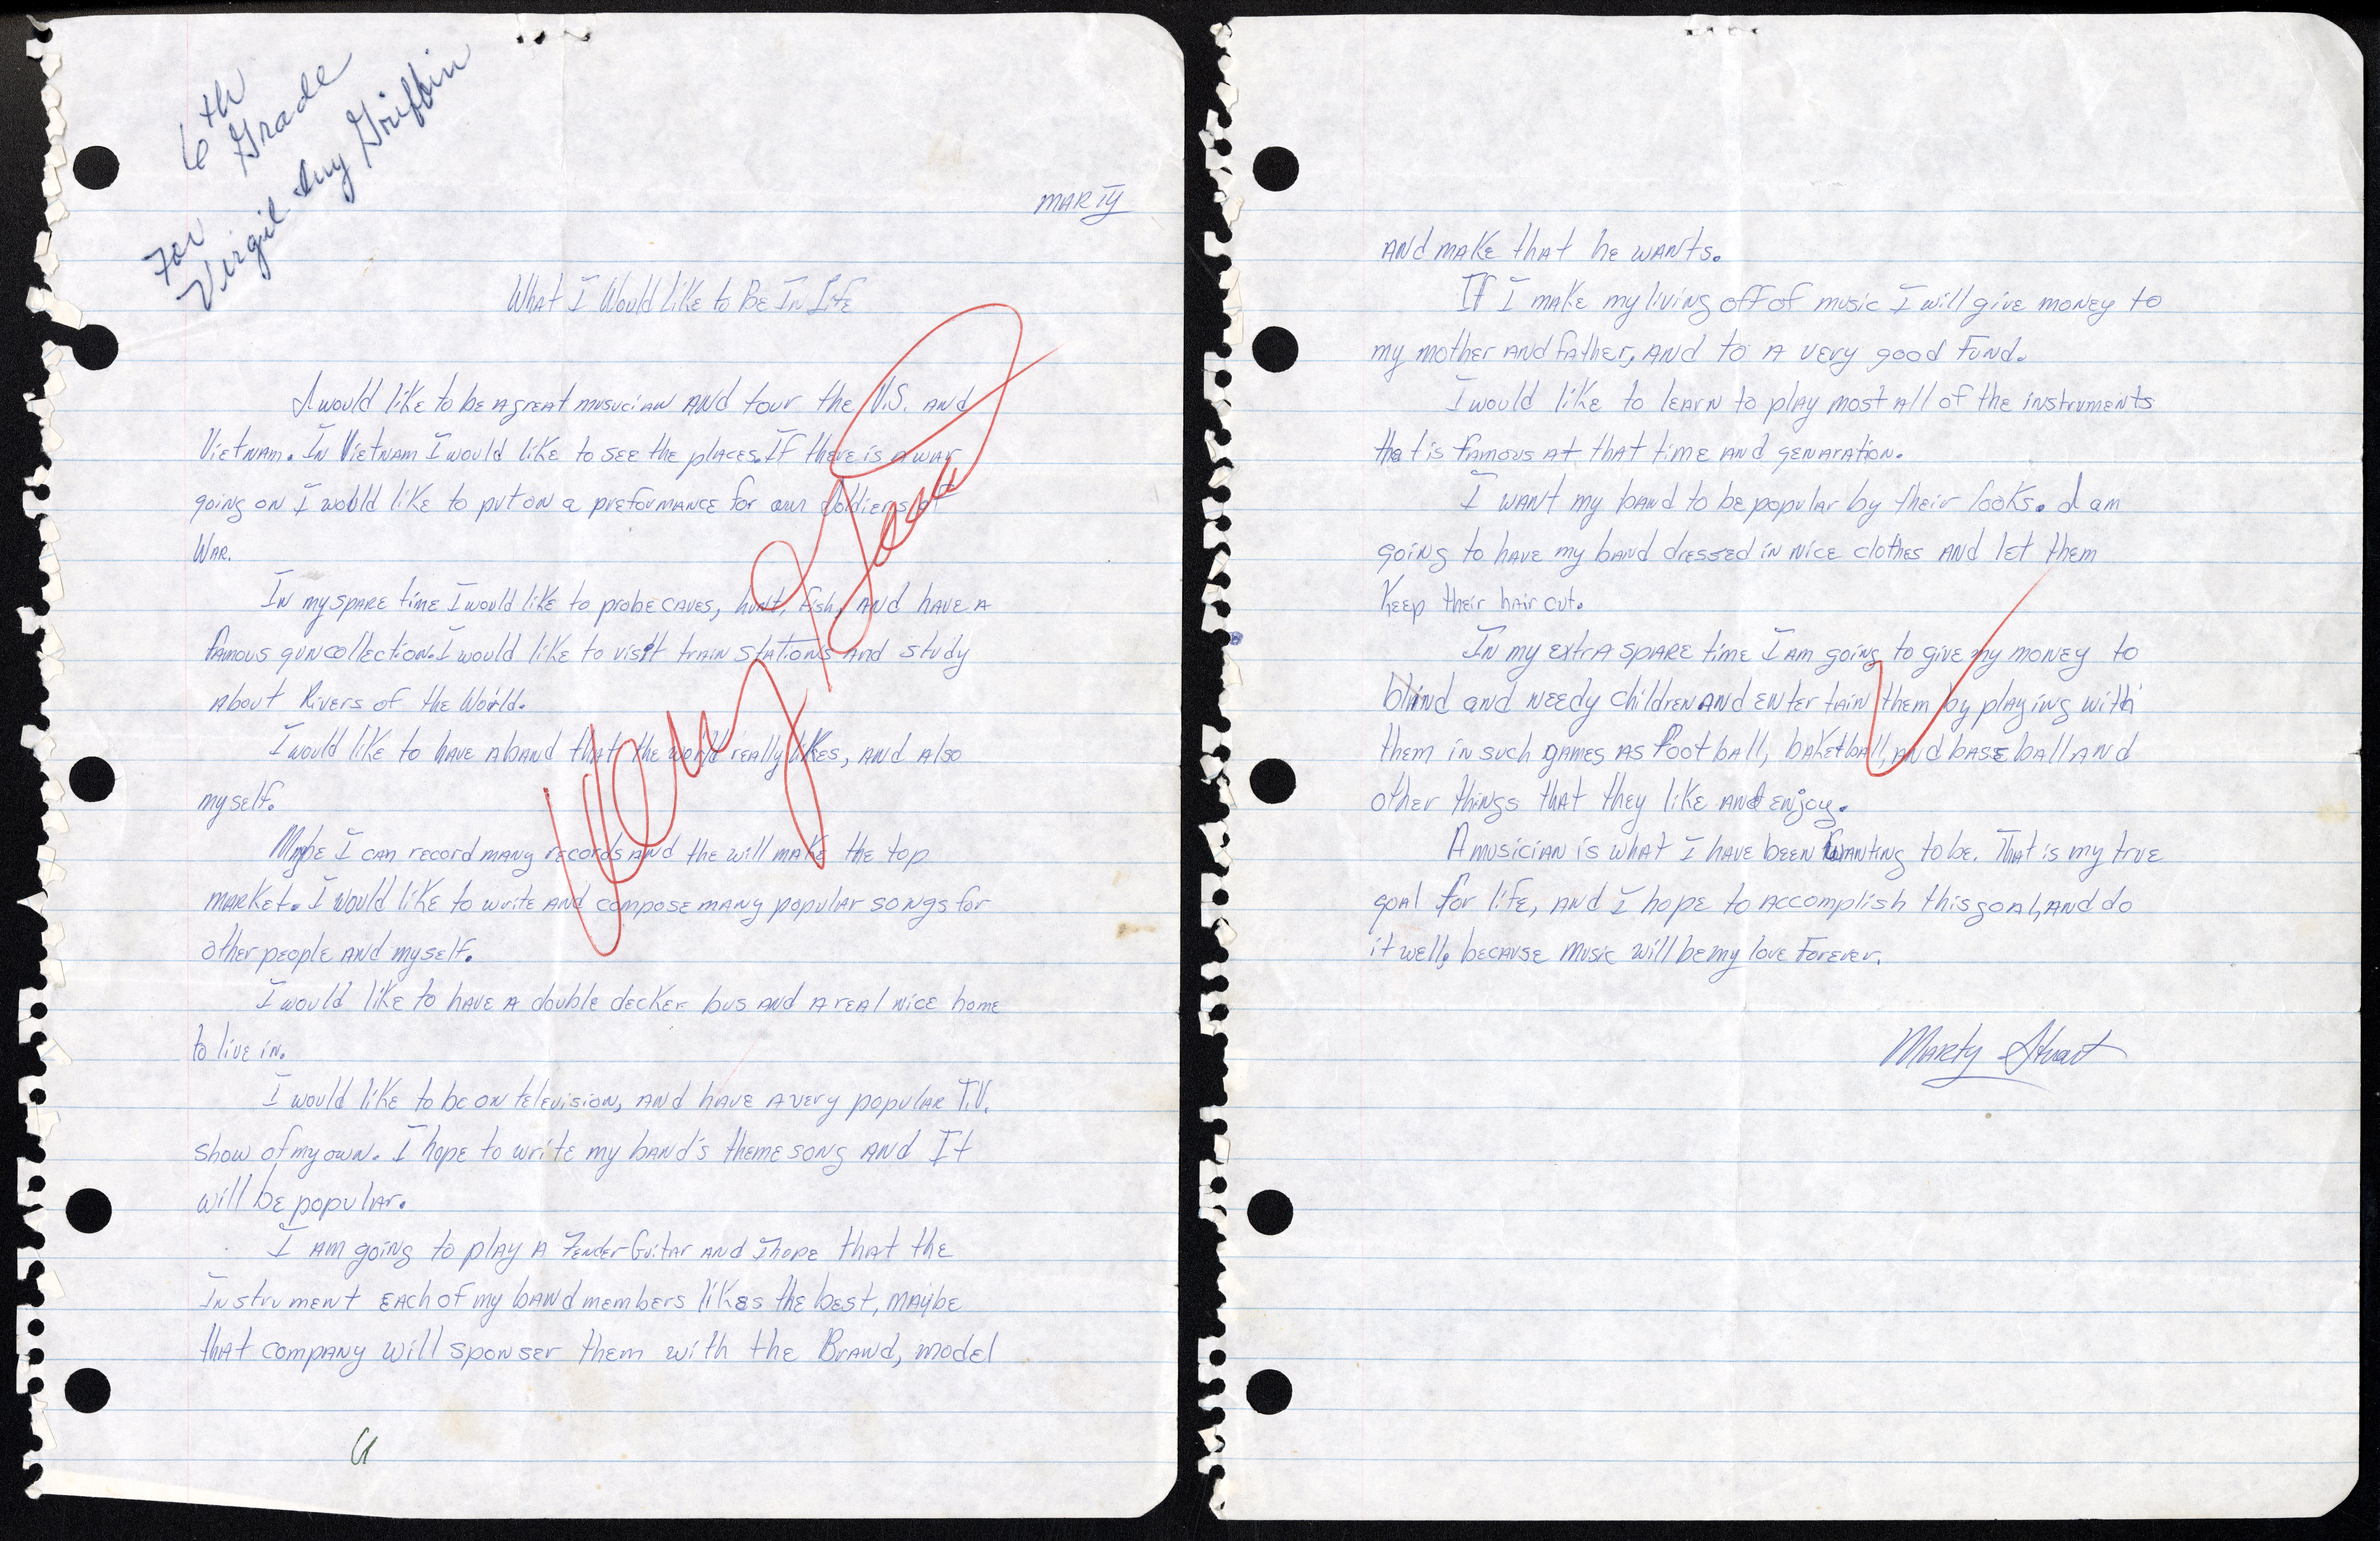 6th
Grade
For
Virgil Ivy Griffin
MARTY
What I Would Like to Be In Life
I would like to be a great musucian and tour the U.S. and
Vietnam. In Vietnam I would like to see the places. If there is a war
going on I would like to put on a preformance for our soldiers at
War.
In my spare time I would like to probe caves, hunt, fish, and have a
famous gun collection. I would like to visit train stations and study
about Rivers of the World.
I would like to have a band that the world really likes, and also
myself.
Mabe I can record many records and the will make the top
market. I would like to write and compose many popular songs for
other people and myself.
I would like to have a double decker bus and a real nice home
to live in.
I would like to be on television, and have a very popular T.V.
show of my own. I hope to write my band's theme song and It
will be popular.
I am going to play a Fender Guitar and I hope that the
Instrument each of my band members likes the best, maybe
that company will sponser them with the Brand, model
Very Good
and make that he wants.
If I make my living off of music I will give money to
my mother and father, and to a very good fund.
I would like to learn to play most all of the instruments
that is famous at that time and genaration.
I want my band to be popular by their looks. I am
going to have my band dressed in nice clothes and let them
Keep their hair cut.
In my extra spare time I am going to give my money to
blind and needy children and entertain them by playing with
them in such games as football, baketball, and baseball and
other things that they like and enjoy.
A musician is what I have been wanting to be. That is my true
goal for life, and I hope to accomplish this goal, and do
it well, because music will be my love Forever.
Marty Stuart